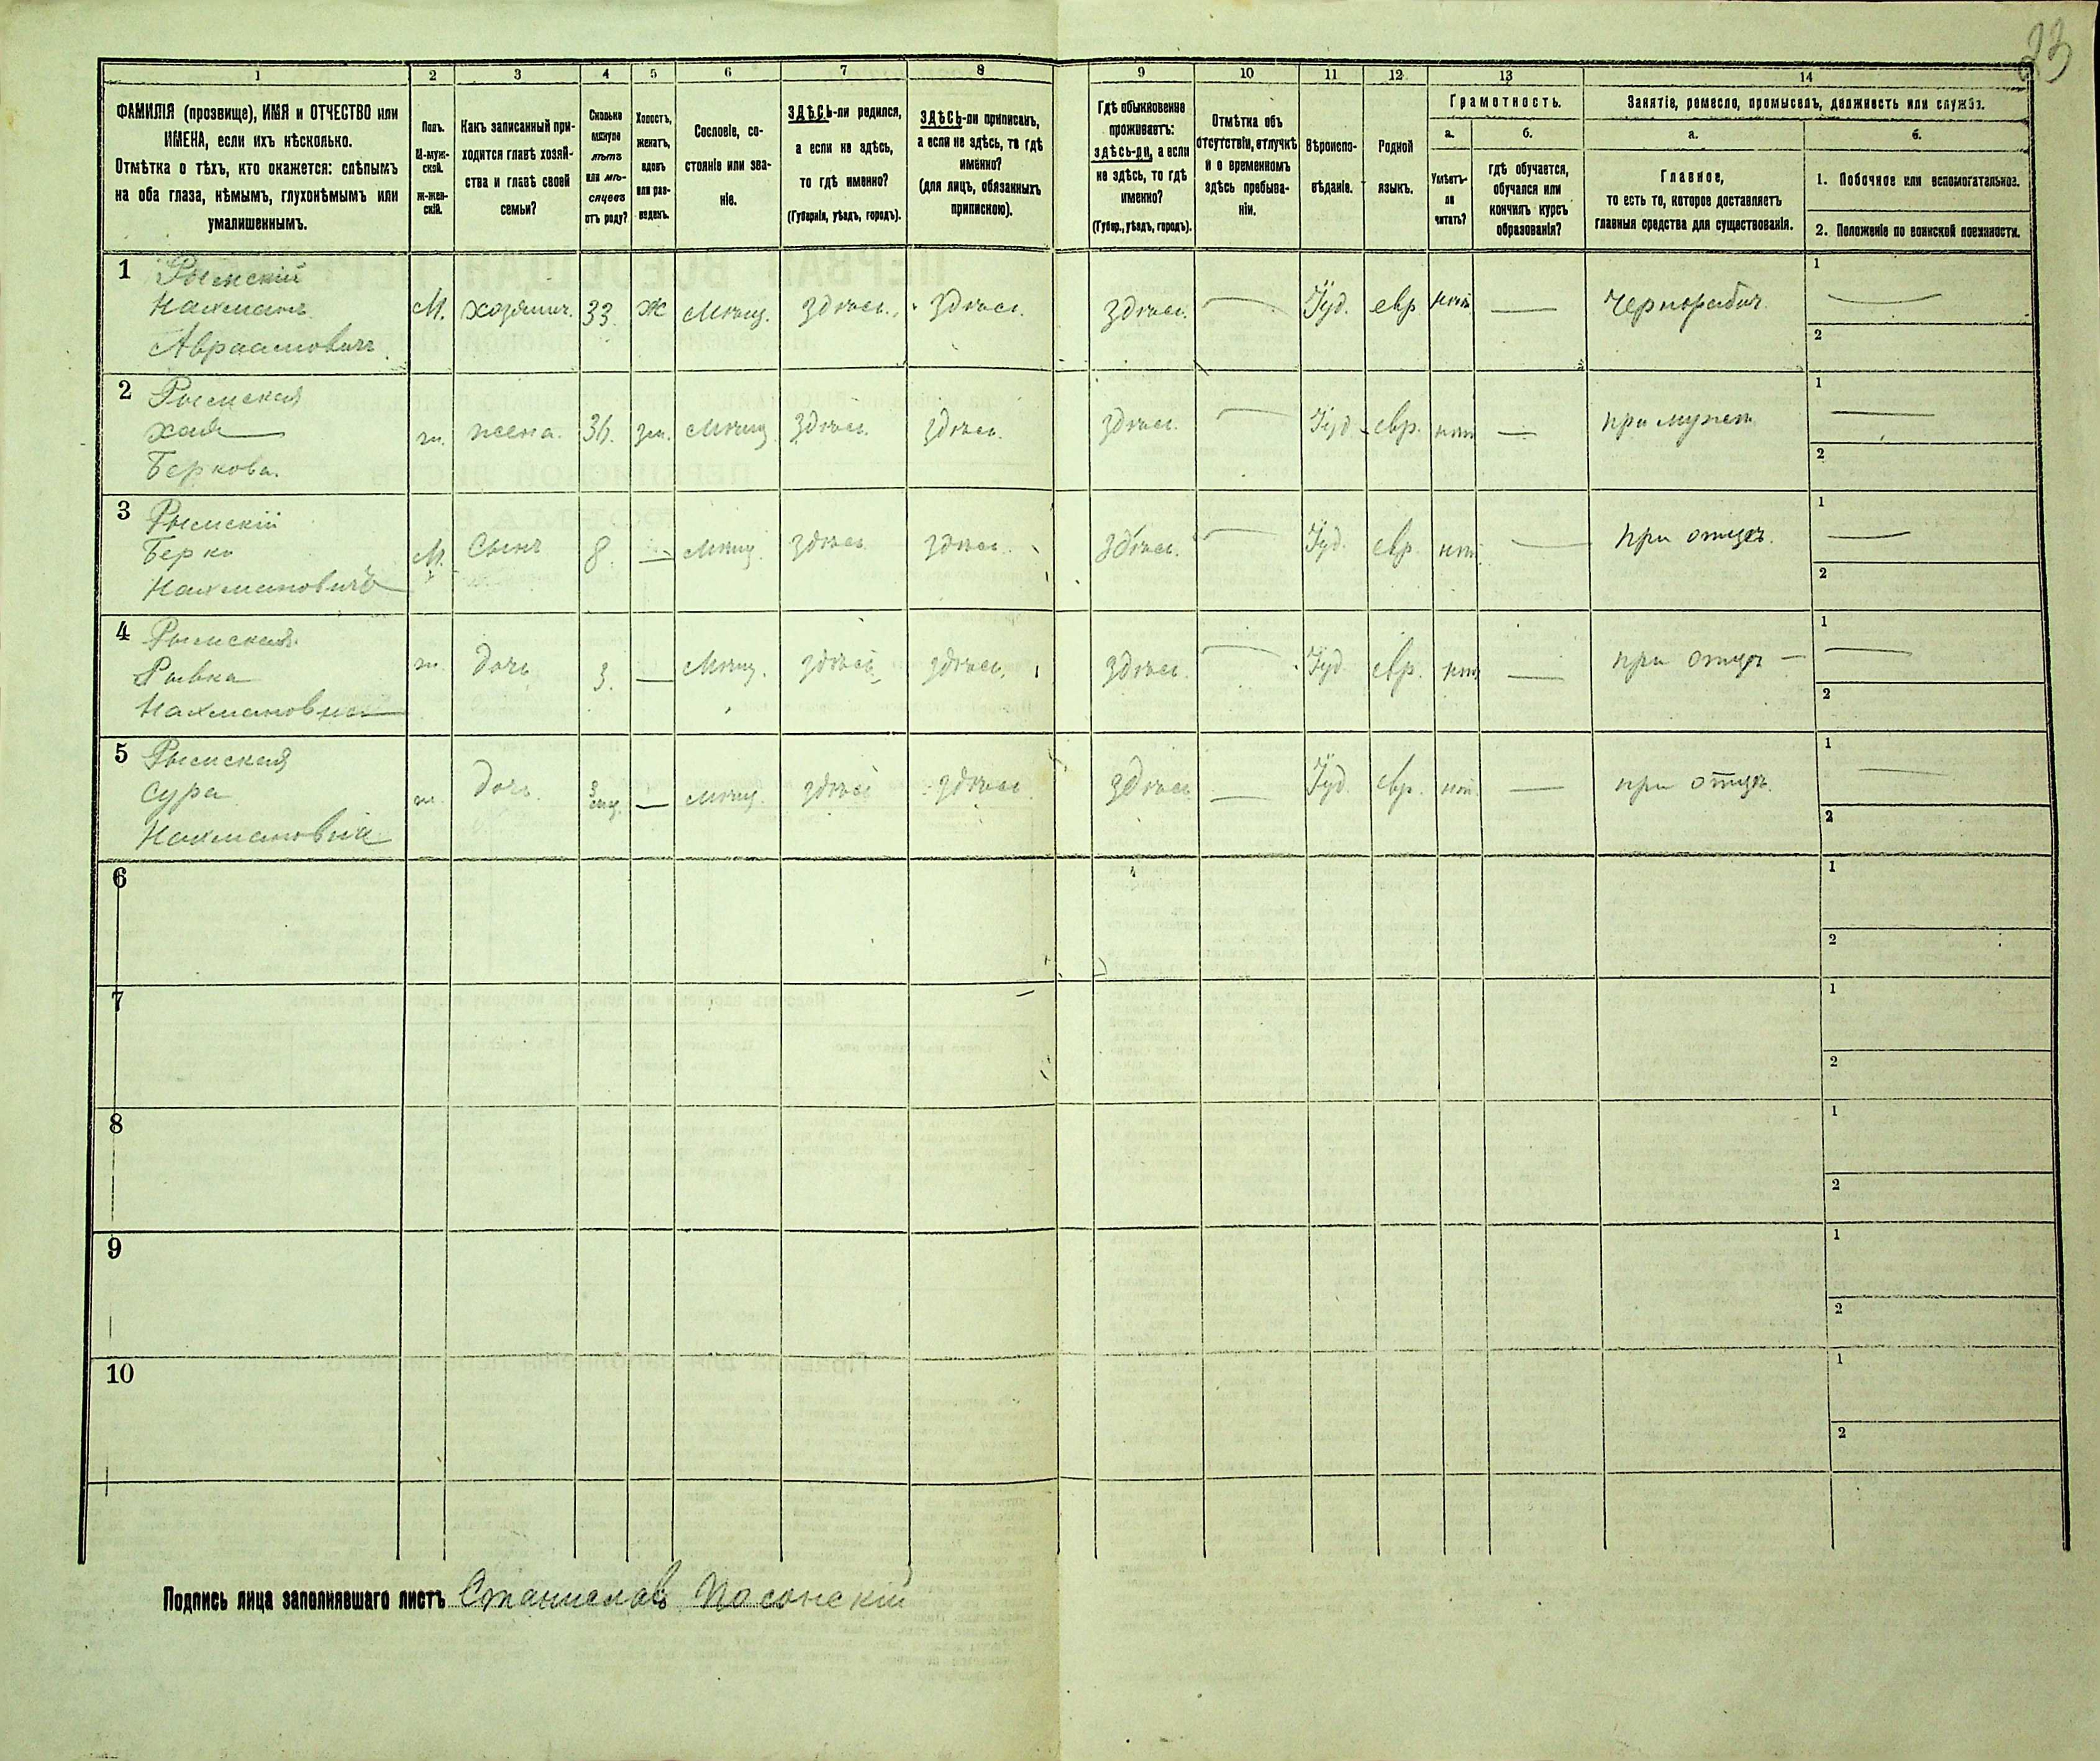 23
1 2 3 4 5 6 7 8 9 10 11 12 13 14
ФАМИЛІЯ (прозвище), ИМЯ и ОТЧЕСТВО или
ИМЕНА, если ихъ нѣсколько.
Отмѣтка о тѣхъ, кто окажется: слѣпымъ
на оба глаза, нѣмымъ, глухонѣмымъ или
умалишеннымъ.
Полъ.
М-муж-
ской.
ж-жен-
скій.
Какъ записанный при-
ходится главѣ хозяй-
ства и главѣ своей
семьи?
Сколько
минуло
лѣтъ
или мѣ-
сяцевъ
отъ роду?
Холостъ,
женатъ,
вдовъ
или раз-
веденъ.
Сословіе, со-
стояніе или зва-
ніе.
ЗДѢСЬ-ли родился,
а если не здѣсь,
то гдѣ именно?
(Губернія, уѣздъ, городъ).
ЗДѢСЬ-ли приписанъ,
а если не здѣсь, то гдѣ
именно?
(для лицъ, обязанныхъ
припискою).
Гдѣ обыкновенно
проживаетъ:
здѣсь-ли, а если
не здѣсь, то гдѣ
именно?
(Губер., уѣздъ, городъ).
Отмѣтка объ
отсутствіи, отлучкѣ
и о временномъ
здѣсь пребыва-
ніи.
Вѣроиспо-
вѣданіе.
Родной
языкъ.
Грамотность.
а.
Умѣетъ-
ли
читать?
б.
гдѣ обучается,
обучался или
кончилъ курсъ
образованія?
Занятіе, ремесло, промыселъ, должность или служба.
а.
Главное,
то есть то, которое доставляетъ
главныя средства для существованія.
б.
1. Побочное или вспомогательное.
2. Положеніе по воинской повинности.
1 Рымскій
Нахманъ
Авраамовичъ
М. хозяинъ. 33. Ж Мѣщ. здѣсь. здѣсь. здѣсь. — Іуд. евр нѣтъ — Чернорабоч.
1 —
2
2 Рымская
Хая
Беркова.
ж. жена. 36. зм. Мѣщ здѣсь. здѣсь. здѣсь. — Іуд евр. нѣтъ — при мужѣ
1 —
2
3 Рымскій
Берко
Нахмановичъ
М. Сынъ 8. — Мѣщ. здѣсь здѣсь. здѣсь. — Іуд. евр. нѣтъ — при отцѣ.
1 —
2
4 Рымская
Рывка
Нахмановна
ж. дочь 3. — Мѣщ. здѣсь здѣсь. здѣсь. — Іуд евр. нѣтъ — при отцѣ —
1 —
2
5 Рымская
Сура
Нахмановна
ж. дочь. — мѣщ. здѣсь здѣсь здѣсь — Іуд евр. нѣтъ — при отцѣ.
1 —
2
6
1
2
7
1
2
8
1
2
9
1
2
10
1
2
Подпись лица заполнявшаго листъ Станиславъ